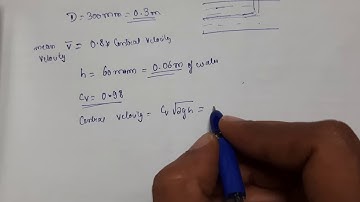 D = 300mm = 0.3m
mean velocity V̄ = 0.8 x Central Velocity
h = 60mm = 0.06m of water
Cv = 0.98
Central velocity = Cv √2gh =